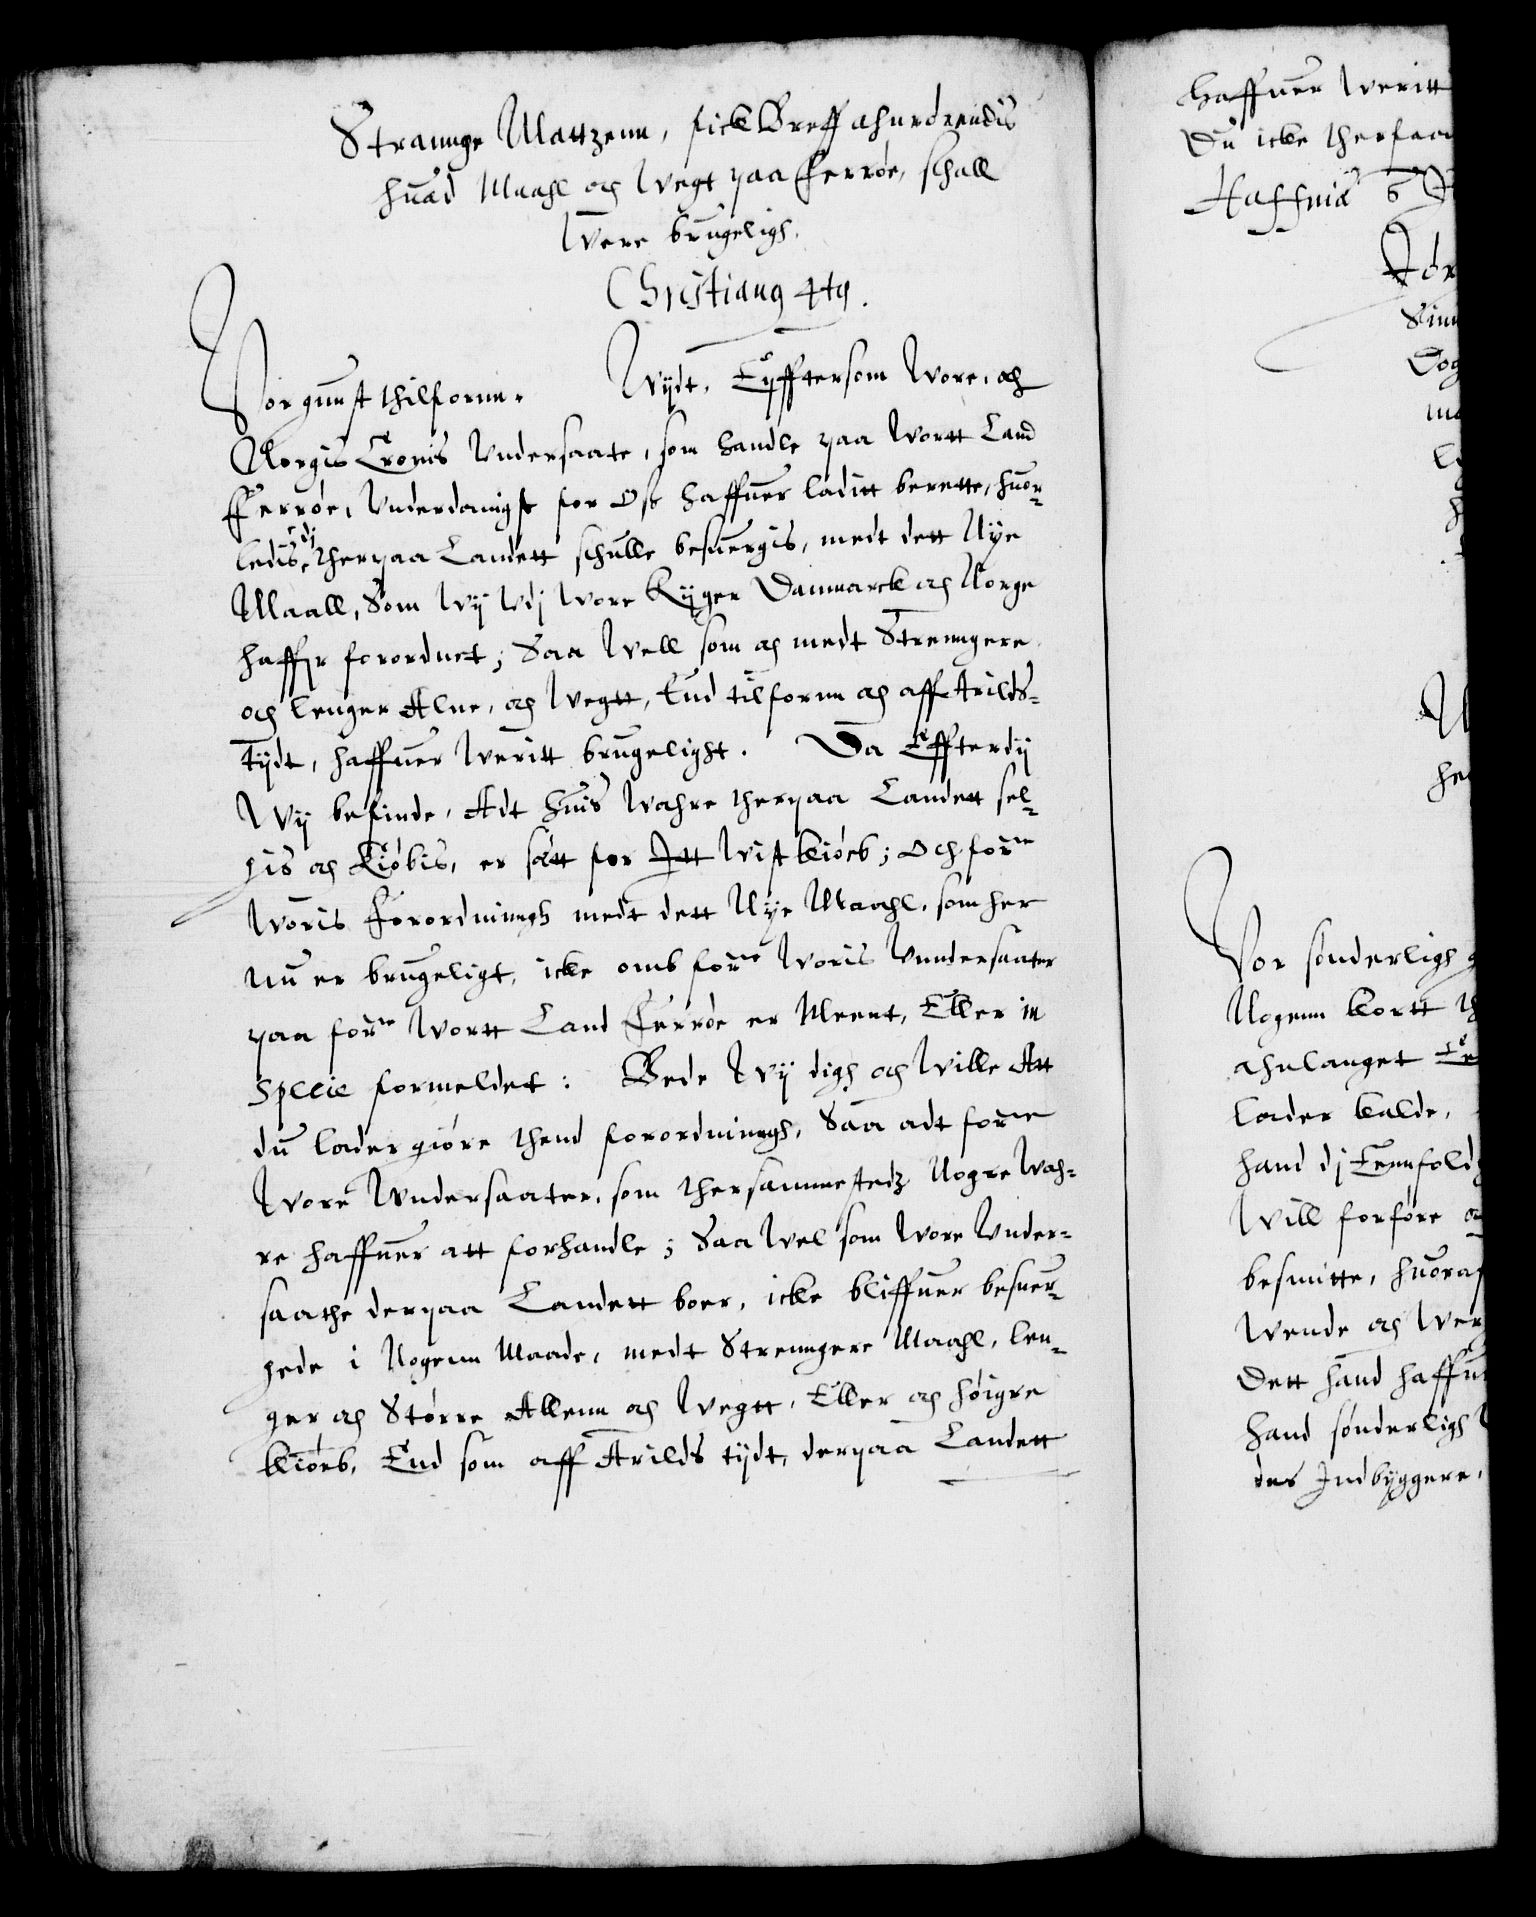 Strannge Mattzenn, fick Breff ahnrdrendis
huad Maahl och Vegt paa Ferrøe, schall
Vere brugeligh.
Christianus 4tus.
Vor gunst thilfornn. Vijdt, Eyfftersom Vore, och
Norgis Cronis Undersaate, som handle paa Vortt Land
Ferrøe, Underdanigst for Oss haffuer laditt berette, huor-
ledis, dj therpaa Landett schulle besuergis, medt dett Nye
Maall, Som Vij Udj Vore Rijger Danmarck och Norge
haffr forordnet; Saa Vell som och medt Strenngere
och lenger Alne, och Vegtt, End tilfornn och aff Arilds-
Tijdt, haffuer Veritt brugelight. Da Effterdij
Vij befinde, Adt huis Vahre therpaa Landett sel-
gis och Kiøbis, er satt for Itt Vist kiøeb; Och forne
Voris Forordningh medt dett Nye Maahl, som her
nu er brugeligt, icke omb forne Voris Unndersaater
paa forne Vortt Land Ferrøe er Meent, Eller in
specie formeldet: Bede Vij digh och Ville Att
du lader giøre thend forordningh, Saa adt forne
Vore Undersaater, som thersammestedz Nogre Vah-
re haffuer att forhandle; Saa Vel som Vore Under-
saathe derpaa Landett boer, icke bliffuer besuer-
gede i Nogenn Maade, medt Strenngere Maahl, len-
ger och Større Allenn och Vegtt, Eller och høigre
kiøeb, End som aff Arilds tijdt, derpaa Landett
haffuer Veritt
Du icke therfaar
Haffniæ 6
Vor sønderligh
Nogenn kortt
ahnlanget
lader kalde,
hand dj Eennfold
Vill forføre
besmitte, huoraf
Vende och
Dett hand
hand sønderligh
des Indbyggere,